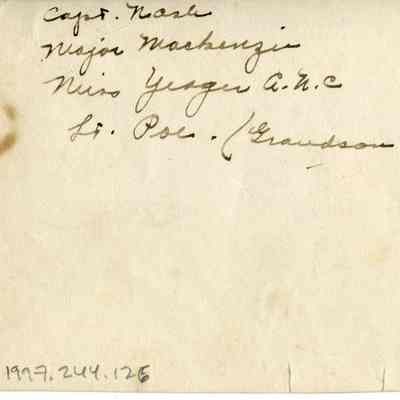 Capt. Nash
Major Mackenzie
Miss Yeager A.N.C
Lt. Poe. (Grandson
1997.244.126